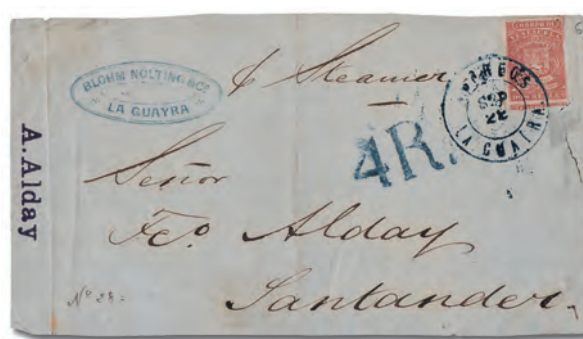 BLOHM NOLTING & Cº
LA GUAYRA
p Steamer
CORREOS
SEP
22
LA GUAIRA
4R.
A. Alday
Señor
Fcº Alday
Santander.
Nº 28.